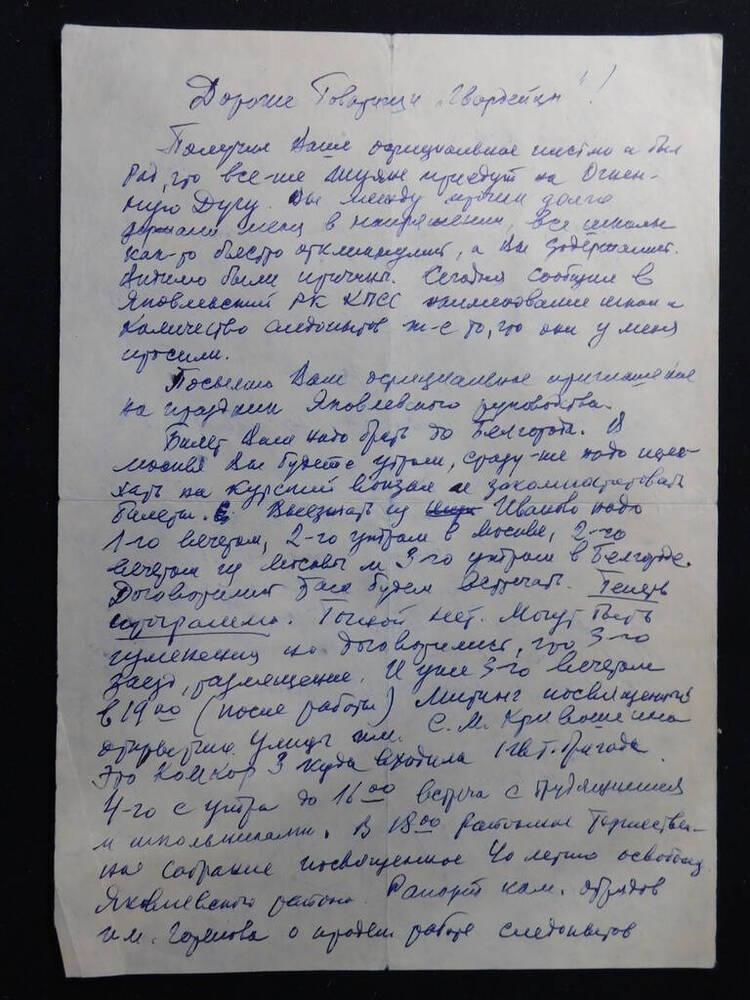 Дорогие Товарищи „Гвардейцы"!
Получил Ваше официальное письмо и был
рад, что все-же шуяне приедут на Огнен-
ную Дугу. Вы между прочим долго
держали меня в напряжении, все школы
как-то быстро откликнулись, а Вы задержались.
Видимо были причины. Сегодня сообщил в
Яковлевский РК КПСС наименование школ и
количество следопытов т-е то, что они у меня
просили.
Посылаю Вам официальное приглашение
на праздник Яковлевского руководства.
Билет Вам надо брать до Белгорода. В
Москве Вы будете утром, сразу-же надо прое-
хать на Курский вокзал и закомпостировать
билеты. Выезжать из Иваново надо
1-го вечером, 2-го утром в Москве, 2-го
вечером из Москвы и 3-го утром в Белгороде.
Договорились Вас будем встречать. Теперь
о программе. Точной нет. Могут быть
изменения но договорились, что 3-го
заезд, размещение. И уже 3-го вечером
в 19 00 (после работы) Митинг посвященный
открытию улицы им. С. М. Кривошеина
Это Комкор 3 куда входила 1 гв. т. бригада.
4-го с утра до 16 00 встреча с трудящимися
и школьниками. В 18 00 районное торжествен-
ное собрание посвященное 40 летию освобожд.
Яковлевского района. Рапорт ком. отрядов
им. Горелова о продел. работе следопытов